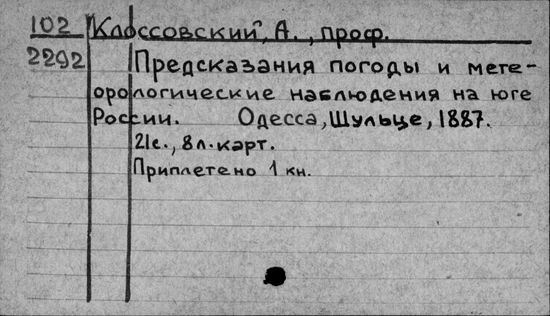 102 Клоссовский, А., проф.
2292 Предсказания погоды и мете-
орологические наблюдения на юге
России. Одесса, Шульце, 1887.
21с., 8 л. карт.
Приплетено 1 кн.